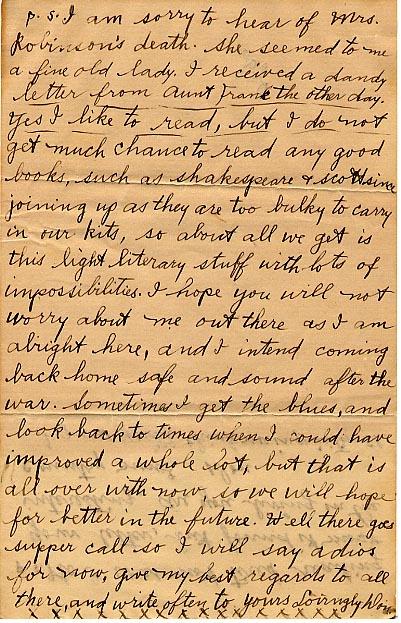 p.s. I am sorry to hear of Mrs.
Robinson's death. She seemed to me
a fine old lady. I received a dandy
letter from Aunt Frank the other day.
Yes I like to read, but I do not
get much chance to read any good
books, such as Shakespeare & Scott since
joining up as they are too bulky to carry
in our kits, so about all we get is
this light literary stuff with lots of
impossibilities. I hope you will not
worry about me out there as I am
alright here, and I intend coming
back home safe and sound after the
war. Sometimes I get the blues, and
look back to times when I could have
improved a whole lot, but that is
all over with now, so we will hope
for better in the future. Well there goes
supper call so I will say adios
for now, give my best regards to all
there, and write often to yours Lovingly
x x x x x x x x x x x x x x x x x